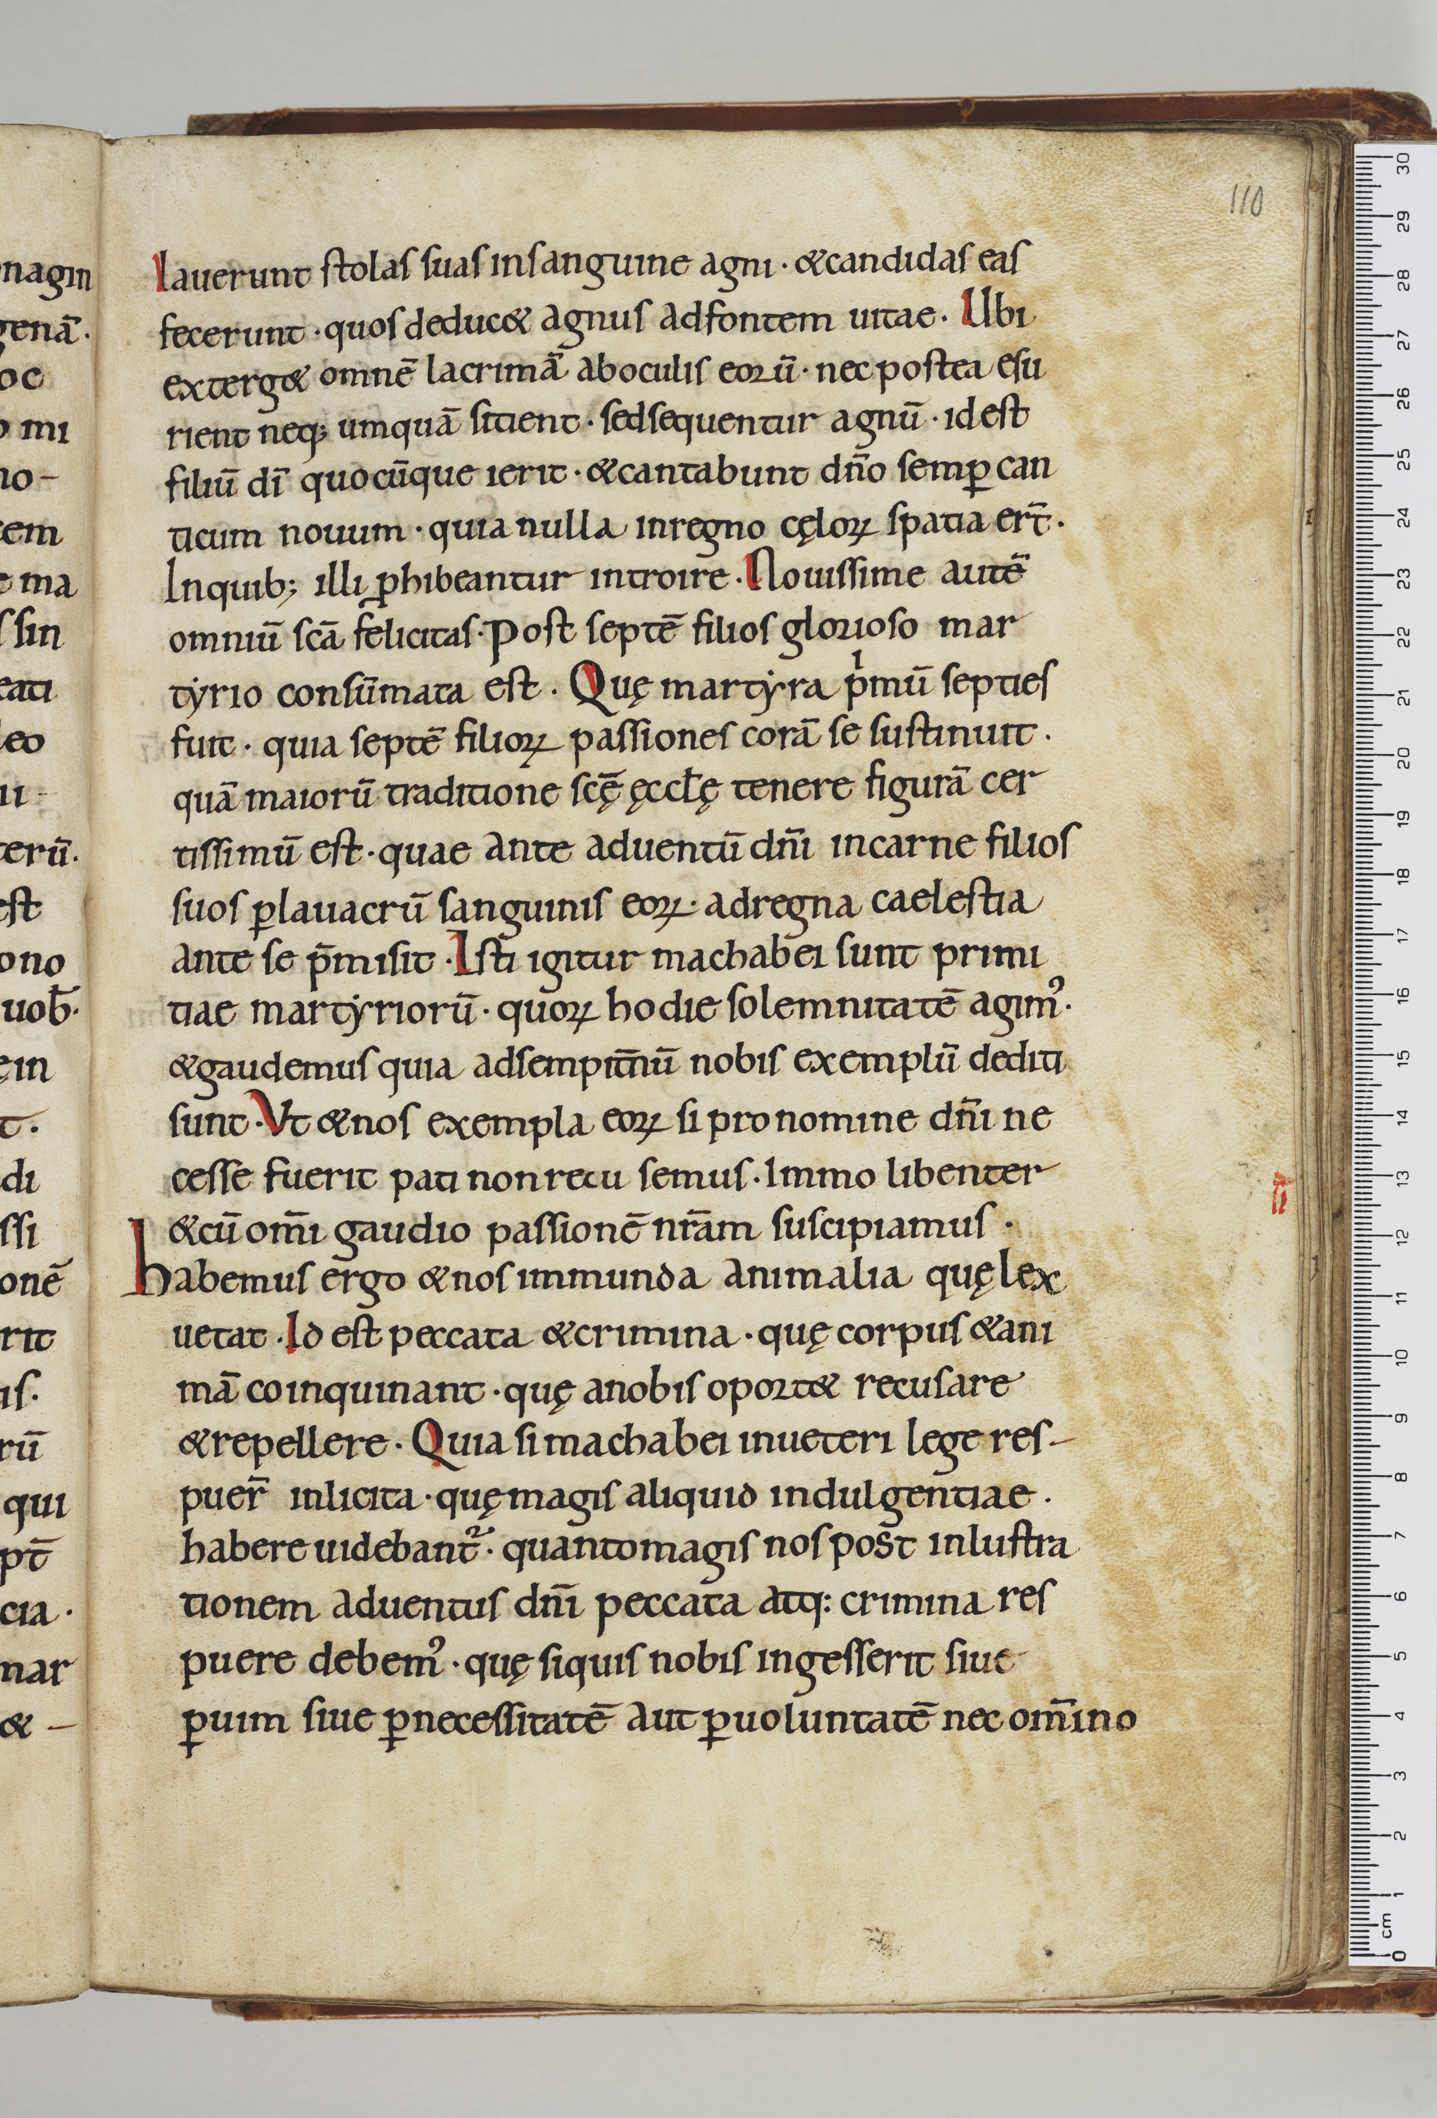 110
lauerunt stolas suas insanguine agni · &candidas eas
fecerunt · quos deduc& agnus adfontem uitae. Ubi
exterg& omnē lacrimā aboculis eorū · nec postea esu
rient neq; umquā sitient · sedsequentur agnū · idest
filiū dī quocūque ierit · &cantabunt dn̄o semꝑ can
ticum nouum · quia nulla inregno cęloꝝ spatia er̄t.
Inquib; illi ꝓhibeantur introire. Nouissime autē
omniū sc̄a felicitas. Post septē filios glorioso mar
tyrio consūmata est. Quę martyra pͥmū septies
fuit · quia septē filioꝝ passiones corā se sustinuit.
quā maiorū traditione sc̄ę ęccl̄ę tenere figurā cer
tissimū est · quae ante aduentū dn̄i incarne filios
suos ꝑlauacrū sanguinis eoꝝ · adregna caelestia
ante se p̄misit. Isti igitur machabei sunt primi
tiae martyriorū · quoꝝ hodie solemnitatē agim᾽.
&gaudemus quia adsempit̄nū nobis exemplū dediti
sunt. Vt &nos exempla eoꝝ si pro nomine dn̄i ne
cesse fuerit pati nonrecu semus. Immo libenter
&cū om̄i gaudio passionē nr̄am suscipiamus.
habemus ergo &nos immunda animalia quę lex
uetat. Id est peccata &crimina · quę corpus &ani
mā coinquinant · quę anobis oport& recusare
&repellere. Quia si machabei inueteri lege res-
puer̄ inlicita · quę magis aliquid indulgentiae.
habere uidebant᷑. quantomagis nos post inlustra
tionem aduentus dn̄i peccata atq: crimina res
puere debem᾽ · quę siquis nobis ingesserit siue
ꝑuim siue ꝑnecessitatē aut ꝑuoluntatē nec om̄ino
nagin
genā.
oc
o mi
no-
tem
e ma
s sin
eati
leo
ii
terū.
est
ono
uob̄.
ein
t.
di
ssi
onē
rit
is.
rū
qui
pt̄
cia.
mar
& -
30
29
28
27
26
25
24
23
22
21
20
19
18
17
16
15
14
13
12
11
10
9
8
7
6
5
4
3
2
1
cm
0